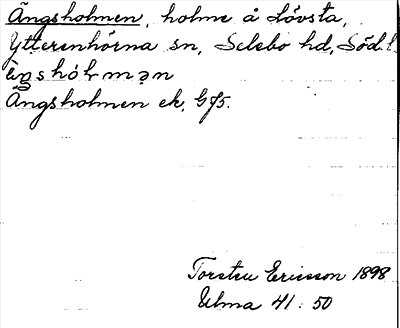 Ängsholmen, holme å Lövsta,
Ytterenhörna sn, Selebo hd, Söd.
Ängsholmen ek,
Torsten Ericsson 1898
Ulma 41:50